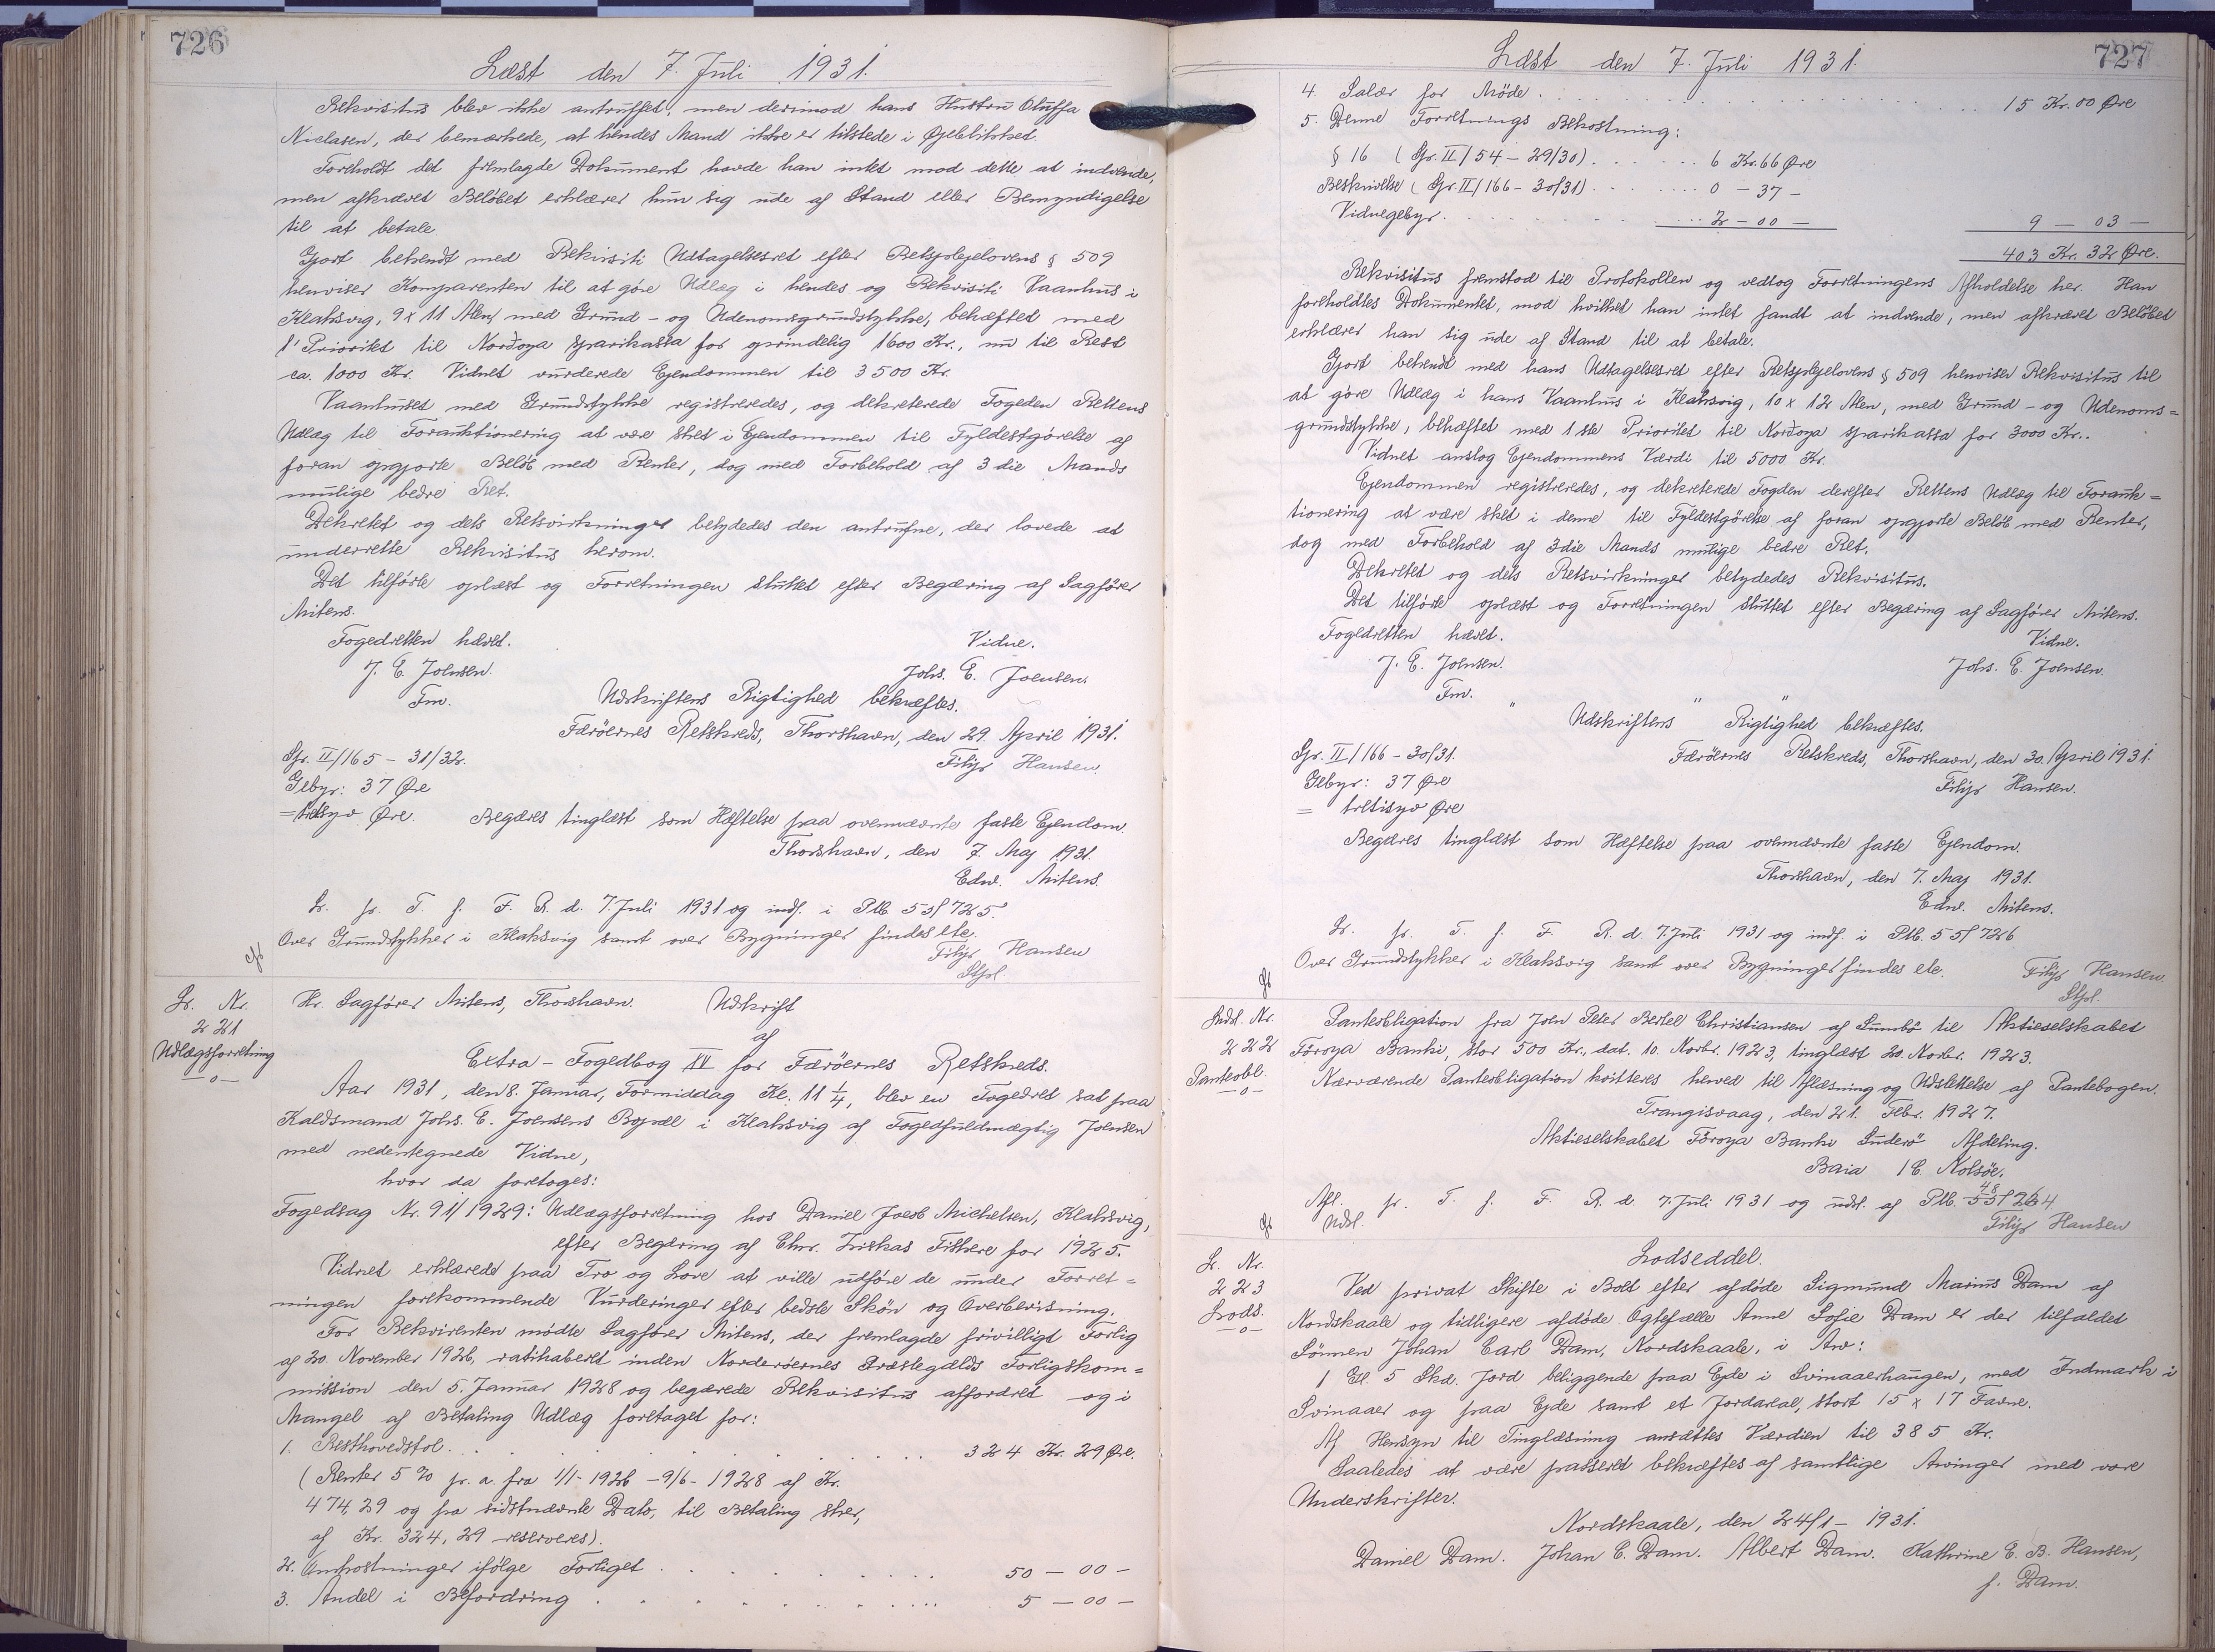 726
Læst den 7. Juli 1931.
Rekvisitus blev ikke antruffet, men derimod hans Hustru Oluffa
Niclasen, der bemærkede, at hendes Mand ikke er tilstede i Øjeblikket.
Foreholdt det fremlagde Dokument havde han intet mod dette at indvende,
men afkrævet Beløbet erklærer hun sig ude af Stand eller Bemyndigelse
til at betale.
Gjort bekendt med Rekvisiti Udtagelsesret efter Retsplejelovens § 509
henviser Komparenten til at göre Udlæg i hendes og Rekvisiti Vaanhus i
Klaksvig, 9 x 11 Alen, med Grund- og Udenomsgrundstykke, behæftet med
1' Prioritet til Norðoya sparikassa for oprindelig 1600 Kr., nu til Rest
ca. 1000 Kr. Vidnet vurderede Ejendommen til 3500 Kr.
Vaanhuset med Grundstykke registreredes, og dekreterede Fogeden Rettens
Udlæg til Forauktionering at være sket i Ejendommen til Fyldestgörelse af
foran opgjorte Beløb med Renter, dog med Forbehold af 3die Mands
mulige bedre Ret.
Dekretet og dets Retsvirkninger betydedes den antrufne, der lovede at
underrette Rekvisitus herom.
Det tilförte oplæst og Forretningen sluttet efter Begæring af Sagförer
Mitens.
Fogedretten hævet. Vidne.
J. E. Joensen. Johs. E. Joensen.
Fm. Udskriftens Rigtighed bekræftes.
Færöernes Retskreds, Thorshavn, den 29. April 1931.
Gr. II/165 - 31/32. Filip Hansen.
Gebyr: 37 Øre
= tretisyv Øre. Begæres tinglæst som Hæftelse paa ovennævnte faste Ejendom.
Thorshavn, den 7. Maj 1931.
Edw. Mitens.
L. pr. T. f. F. R. d. 7. Juli 1931 og indf. i Ptb 55/725.
Over Grundstykker i Klaksvig samt over Bygninger findes ete.
Filip Hansen
Stpl.
L. Nr. Hr. Sagförer Mitens, Thorshavn. Udskrift
221 af
Udlægsforretning Extra-Fogedbog IV for Færöernes Retskreds.
—o—
Aar 1931, den 8. Januar, Formiddag Kl. 11 1/4, blev en Fogedret sat paa
Kaldsmand Johs. E. Joensens Bopæl i Klaksvig af Fogedfuldmægtig Joensen
med nedentegnede Vidne,
hvor da foretoges:
Fogedsag Nr. 91/1929: Udlægsforretning hos Daniel Jacob Michelsen, Klaksvig,
efter Begæring af Chr. Liskas Fiskere for 1925.
Vidnet erklærede paa Tro og Love at ville udföre de under Forret=
ningen forekommende Vurderinger efter bedste Skön og Overbevisning.
For Rekvirenten mödte Sagförer Mitens, der fremlagde frivilligt Forlig
af 20. November 1926, ratihaberet inden Norderöernes Præstegælds Forligskom=
mission den 5. Januar 1928 og begærede Rekvisitus affordret og i
Mangel af Betaling Udlæg foretaget for:
1. Resthovedstol. . . . . . . . . 324 Kr. 29 Øre.
(Renter 5 % pr. a. fra 1/1-1926 - 9/6-1928 af Kr.
474,29 og fra sidstnævnte Dato, til Betaling sker,
af Kr. 324,29 reserveres).
2. Omkostninger ifölge Forliget . . . . . . . 50 — 00 —
3. Andel i Befordring . . . . . . . . . 5 — 00 —
727
Læst den 7. Juli 1931.
4. Salær for Möde . . . . . . . . . . 15 Kr. 00 Øre
5. Denne Forretnings Bekostning:
§ 16 (Gr. II/54 - 29/30) . . . . . . 6 Kr. 66 Øre
Beskrivelse (Gr. II/166 - 30/31) . . . . . . 0 - 37 -
Vidnegebyr. . . . . . . . . . 2 - 00 — 9 — 03 —
403 Kr. 32 Øre.
Rekvisitus fremstod til Protokollen og vedtog Forretningens Afholdelse her. Han
foreholdtes Dokumentet, mod hvilket han intet fandt at indvende, men afkrævet Beløbet
erklærer han sig ude af Stand til at betale.
Gjort bekendt med hans Udtagelsesret efter Retsplejelovens § 509 henviser Rekvisitus til
at göre Udlæg i hans Vaanhus i Klaksvig, 10 x 12 Alen, med Grund- og Udenoms=
grundstykke, behæftet med 1ste Prioritet til Norðoya sparikassa for 3000 Kr..
Vidnet anslog Ejendommens Værdi til 5000 Kr.
Ejendommen registreredes, og dekreterede Fogden derefter Rettens Udlæg til Forauk=
tionering at være sket i denne til Fyldestgörelse af foran opgjorte Beløb med Renter,
dog med Forbehold af 3die Mands mulige bedre Ret.
Dekretet og dets Retsvirkninger betydedes Rekvisitus.
Det tilförte oplæst og Forretningen sluttet efter Begæring af Sagförer Mitens.
Fogedretten hævet. Vidne.
J. E. Joensen. Johs. E. Joensen.
Fm.
" " "
Udskriftens Rigtighed bekræftes.
Gr. II/166 - 30/31. Færöernes Retskreds, Thorshavn, den 30. April 1931.
Gebyr: 37 Øre Filip Hansen.
= tretisyv Øre
Begæres tinglæst som Hæftelse paa ovennævnte faste Ejendom.
Thorshavn, den 7. Maj 1931.
Edw. Mitens.
L. pr. T. f. F. R. d. 7. Juli 1931 og indf. i Ptb. 55/726
Over Grundstykker i Klaksvig samt over Bygninger findes ete. Filip Hansen.
Stpl.
Indl. Nr. Panteobligation fra Joen Peter Bertel Christiansen af Sumbö til Aktieselskabet
222 Föroya Banki, stor 500 Kr., dat. 10. Novbr. 1923, tinglæst 20. Novbr. 1923.
Panteobl. Nærværende Panteobligation kvitteres herved til Aflæsning og Udslettelse af Pantebogen.
—o—
Trangisvaag, den 21. Febr. 1927.
Aktieselskabet Föroya Banki Suderö Afdeling.
Baia / E Nolsöe.
Afl. pr. T. f. F. R. d. 7. Juli 1931 og udsl. af Ptb. 48/264
Udsl. Filip Hansen
L. Nr. Lodseddel.
223 Ved privat Skifte i Boet efter afdöde Sigmund Marius Dam af
Lods. Nordskaale og tidligere afdöde Ægtefælle Anne Sofie Dam er der tilfaldet
—o—
Sönnen Johan Carl Dam, Nordskaale, i Arv:
1 Gl. 5 Skd. Jord beliggende paa Ejde i Svinaaerhaugen, med Indmark i
Svinaaer og paa Ejde samt et Jordareal, stort 15 x 17 Favne.
Af Hensyn til Tinglæsning ansættes Værdien til 385 Kr.
Saaledes at være passeret bekræftes af samtlige Arvinger med vore
Underskrifter.
Nordskaale, den 24/1 - 1931.
Daniel Dam. Johan C. Dam. Albert Dam. Kathrine E. B. Hansen,
f. Dam.